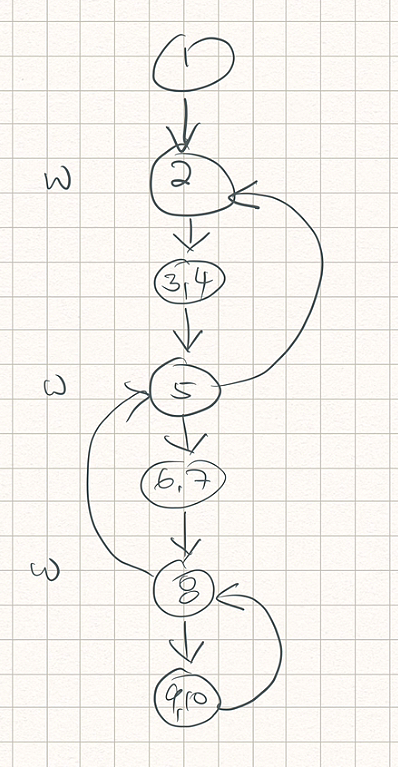 1
W 2
3,4
W 5
6,7
W 8
9,10